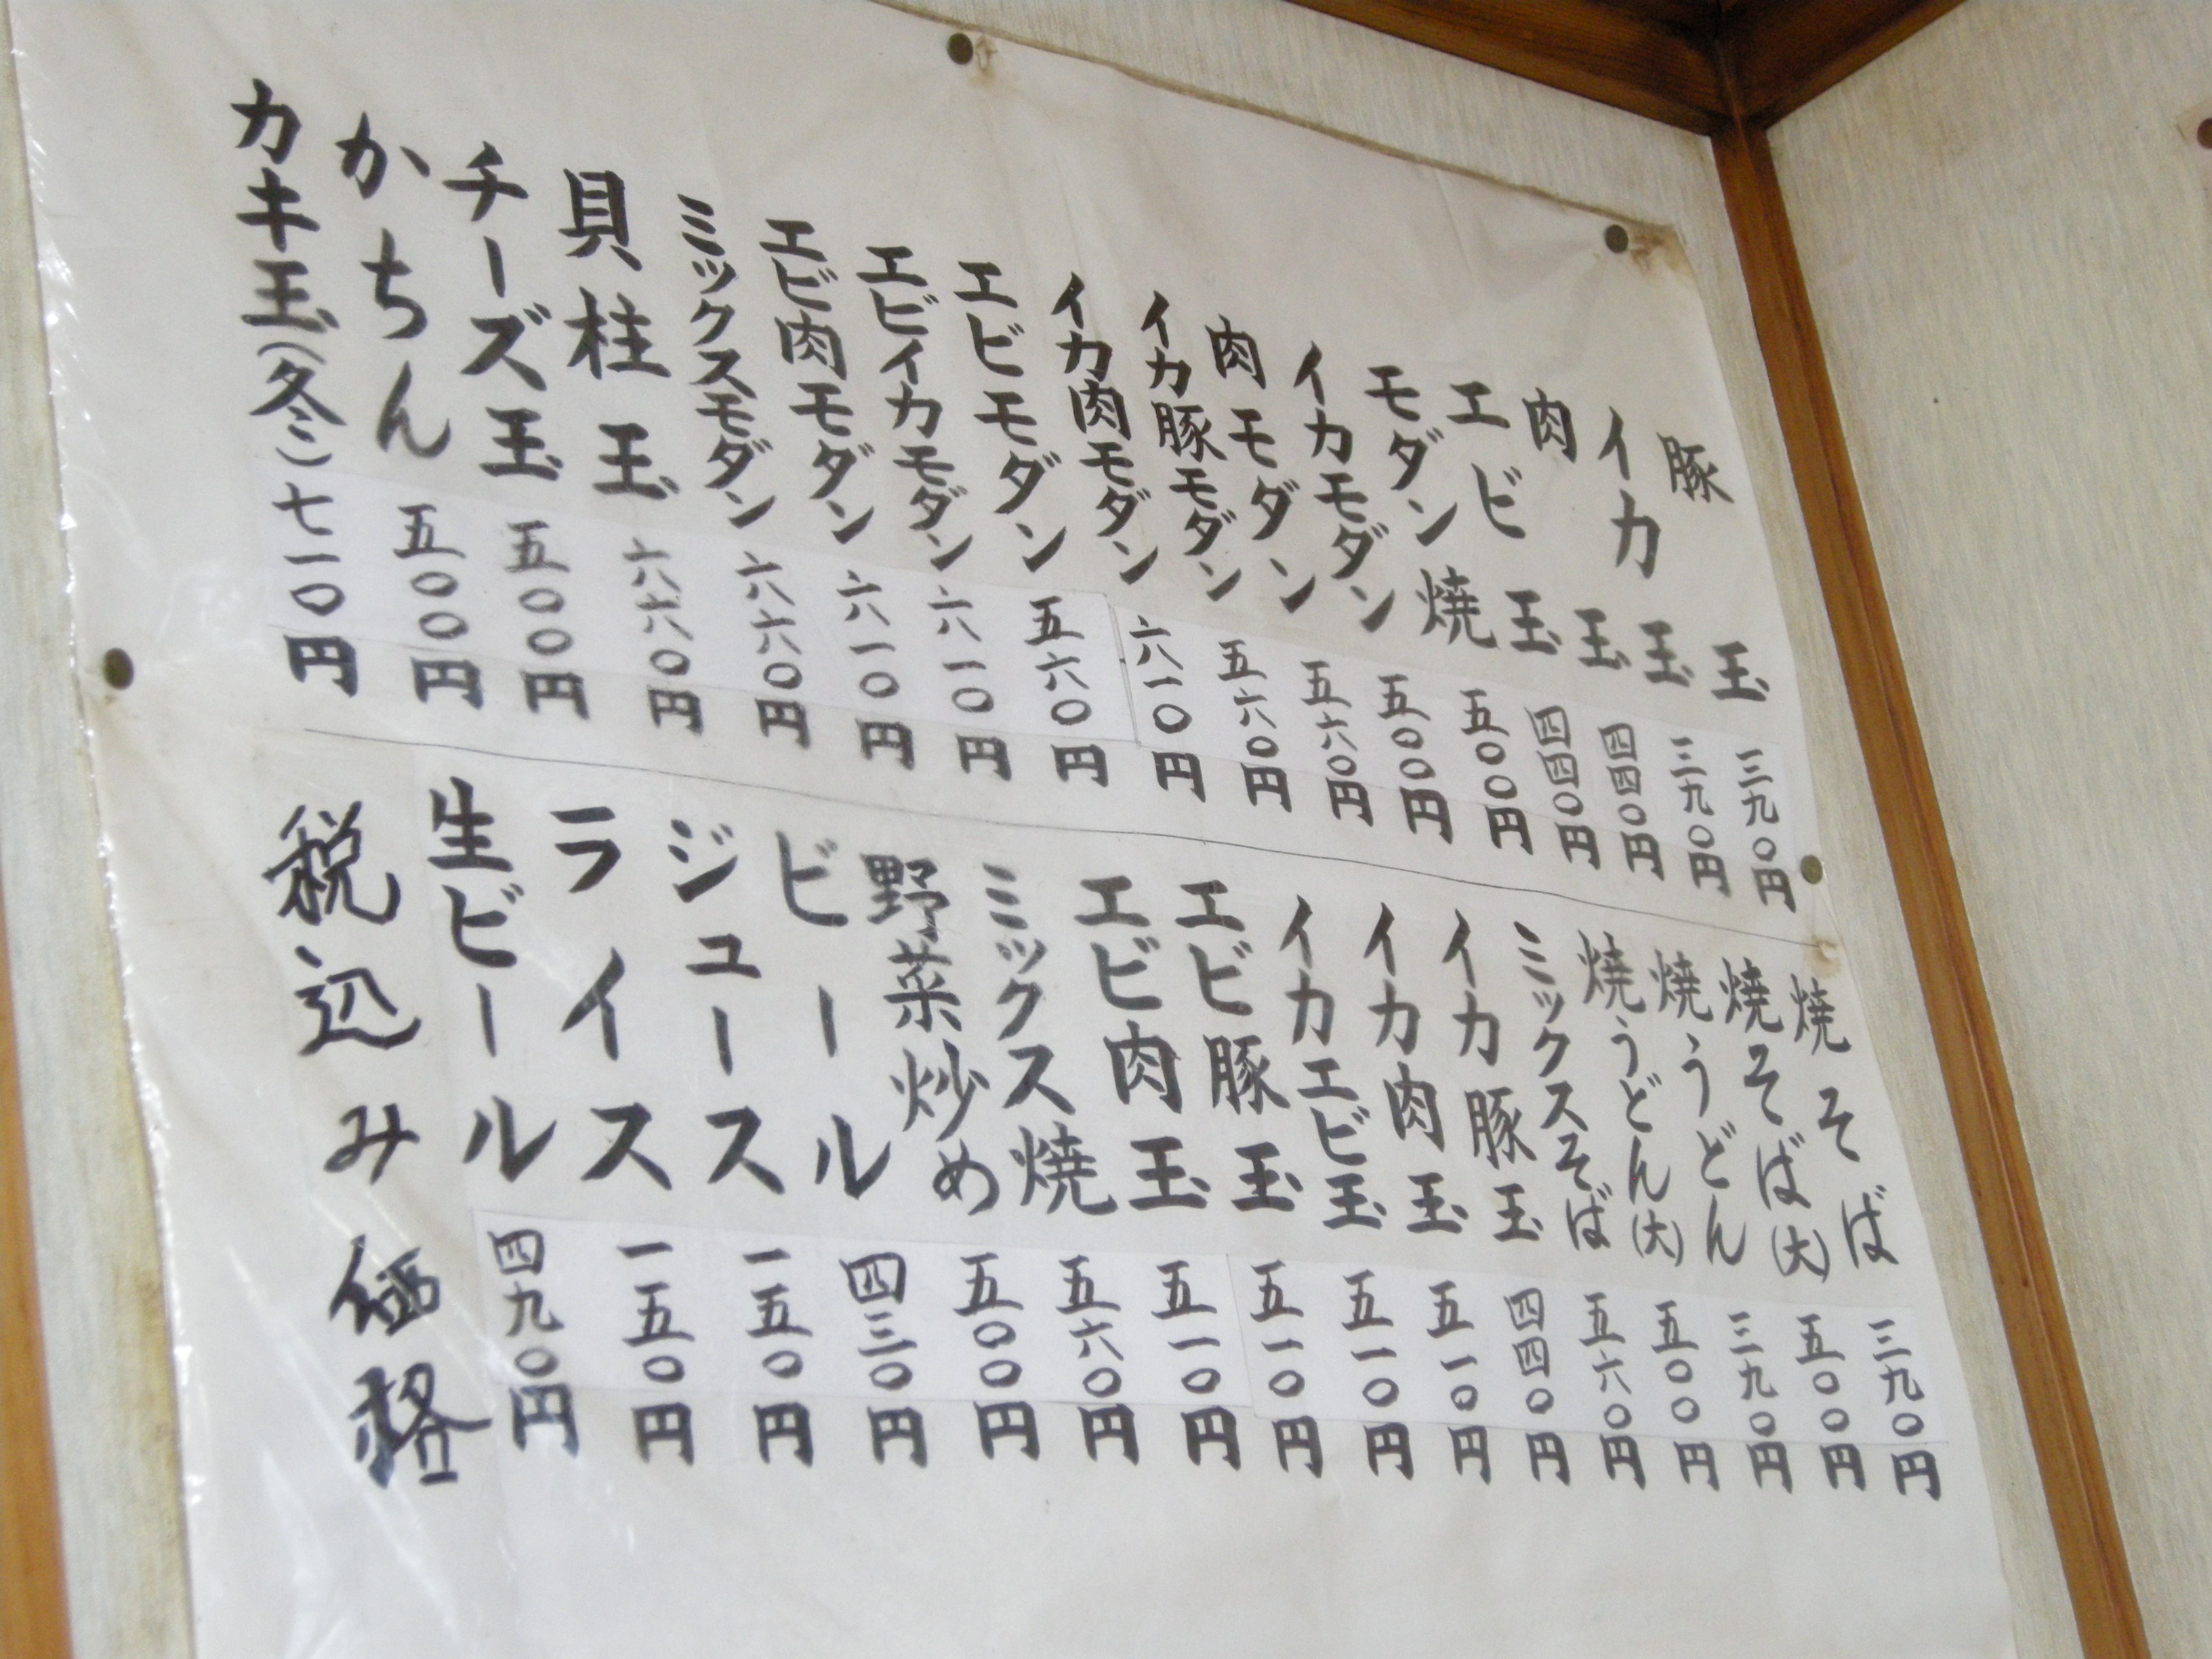 豚玉 三九〇円
イカ玉 三九〇円
肉玉 四四〇円
エビ玉 四四〇円
モダン焼 五〇〇円
イカモダン 五〇〇円
肉モダン 五六〇円
イカ豚モダン 五六〇円
イカ肉モダン 六一〇円
エビモダン 五六〇円
エビイカモダン 六一〇円
エビ肉モダン 六一〇円
ミックスモダン 六六〇円
貝柱玉 六六〇円
チーズ玉 五〇〇円
かちん 五〇〇円
カキ玉(冬) 七一〇円
焼そば 三九〇円
焼そば(大) 五〇〇円
焼うどん 三九〇円
焼うどん(大) 五〇〇円
ミックスそば 五六〇円
イカ豚玉 四四〇円
イカ肉玉 五一〇円
イカエビ玉 五一〇円
エビ豚玉 五一〇円
エビ肉玉 五一〇円
ミックス焼 五六〇円
野菜炒め 五〇〇円
ビール 四三〇円
ジュース 一五〇円
ライス 一五〇円
生ビール 四九〇円
税込み価格